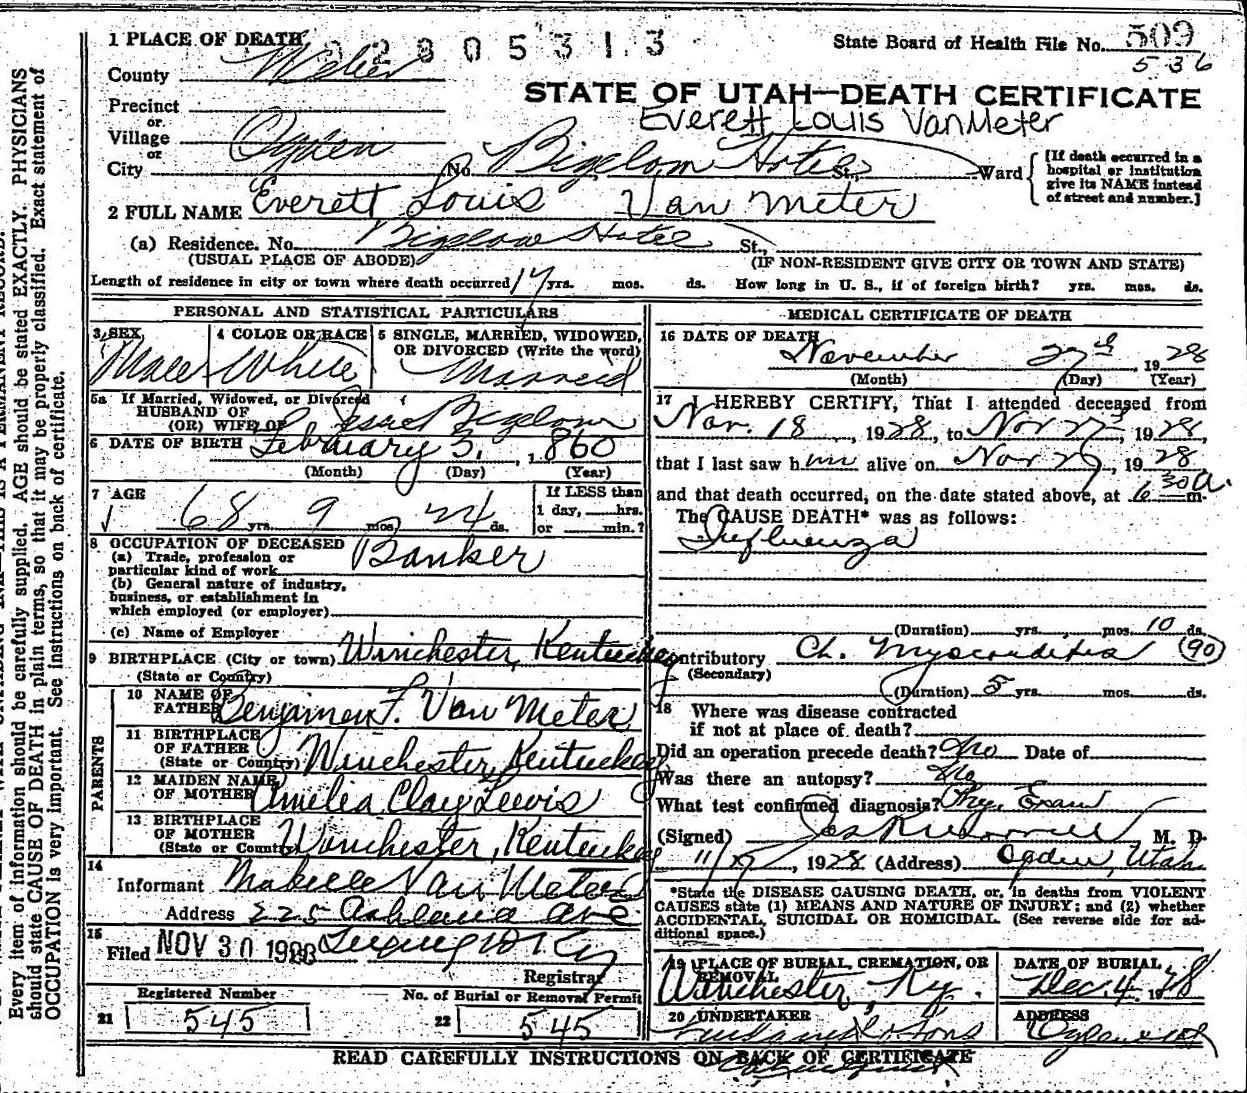 1 PLACE OF DEATH 02805313
State Board of Health File No. 509
536
County Weber
STATE OF UTAH—DEATH CERTIFICATE
Precinct
or
Everett Louis VanMeter
Village
or
City Ogden No. Bigelow Hotel St., Ward
[If death occurred in a hospital or institution give its NAME instead of street and number.]
2 FULL NAME Everett Louis Van Meter
(a) Residence. No. Bigelow Hotel St.,
(USUAL PLACE OF ABODE) (IF NON-RESIDENT GIVE CITY OR TOWN AND STATE)
Length of residence in city or town where death occurred 17 yrs. mos. ds. How long in U. S., if of foreign birth? yrs. mos. ds.
PERSONAL AND STATISTICAL PARTICULARS
3 SEX Male
4 COLOR OR RACE White
5 SINGLE, MARRIED, WIDOWED,
OR DIVORCED (Write the word)
Married
5a If Married, Widowed, or Divorced
HUSBAND OF
(OR) WIFE OF Bigelow
6 DATE OF BIRTH February 3, 1860
(Month) (Day) (Year)
7 AGE
68 yrs. 9 mos. 24 ds.
If LESS than
1 day, hrs.
or min.?
8 OCCUPATION OF DECEASED
(a) Trade, profession or
particular kind of work Banker
(b) General nature of industry,
business, or establishment in
which employed (or employer)
(c) Name of Employer
9 BIRTHPLACE (City or town) Winchester, Kentucky
(State or Country)
PARENTS
10 NAME OF
FATHER Benjamen F. Van Meter
11 BIRTHPLACE
OF FATHER
(State or Country) Winchester, Kentuckey
12 MAIDEN NAME
OF MOTHER Amelia Clay Lewis
13 BIRTHPLACE
OF MOTHER
(State or Country) Winchester, Kentuckey
14
Informant Van Meter
Address 225 Ashland Ave
15
Filed NOV 30 1928
Registrar
Registered Number No. of Burial or Removal Permit
21 545 22 545
MEDICAL CERTIFICATE OF DEATH
16 DATE OF DEATH
November 27th, 1928
(Month) (Day) (Year)
17 I HEREBY CERTIFY, That I attended deceased from
Nov. 18, 1928, to Nov 27th, 1928,
that I last saw him alive on Nov 27, 1928
and that death occurred, on the date stated above, at 6 30 A. m.
The CAUSE DEATH* was as follows:
Influenza
(Duration) yrs. mos. 10 ds.
Contributory Ch. Myocarditis (90)
(Secondary)
(Duration) 5 yrs. mos. ds.
18 Where was disease contracted
if not at place of death?
Did an operation precede death? No Date of
Was there an autopsy? No
What test confirmed diagnosis? Phy. Exam
(Signed) M. D.
11/27, 1928 (Address) Ogden, Utah
*State the DISEASE CAUSING DEATH, or, in deaths from VIOLENT
CAUSES state (1) MEANS AND NATURE OF INJURY; and (2) whether
ACCIDENTAL, SUICIDAL OR HOMICIDAL. (See reverse side for ad-
ditional space.)
19 PLACE OF BURIAL, CREMATION, OR
REMOVAL
Winchester, Ky.
DATE OF BURIAL
Dec. 4, 1928
20 UNDERTAKER
& Sons
ADDRESS
Ogden Utah
READ CAREFULLY INSTRUCTIONS ON BACK OF CERTIFICATE
Every item of information should be carefully supplied. AGE should be stated EXACTLY. PHYSICIANS
should state CAUSE OF DEATH in plain terms, so that it may be properly classified. Exact statement of
OCCUPATION is very important. See instructions on back of certificate.